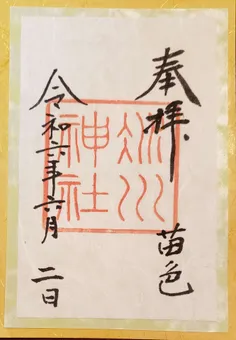 奉拝
苗色
氷川
神社
令和六年六月
二日